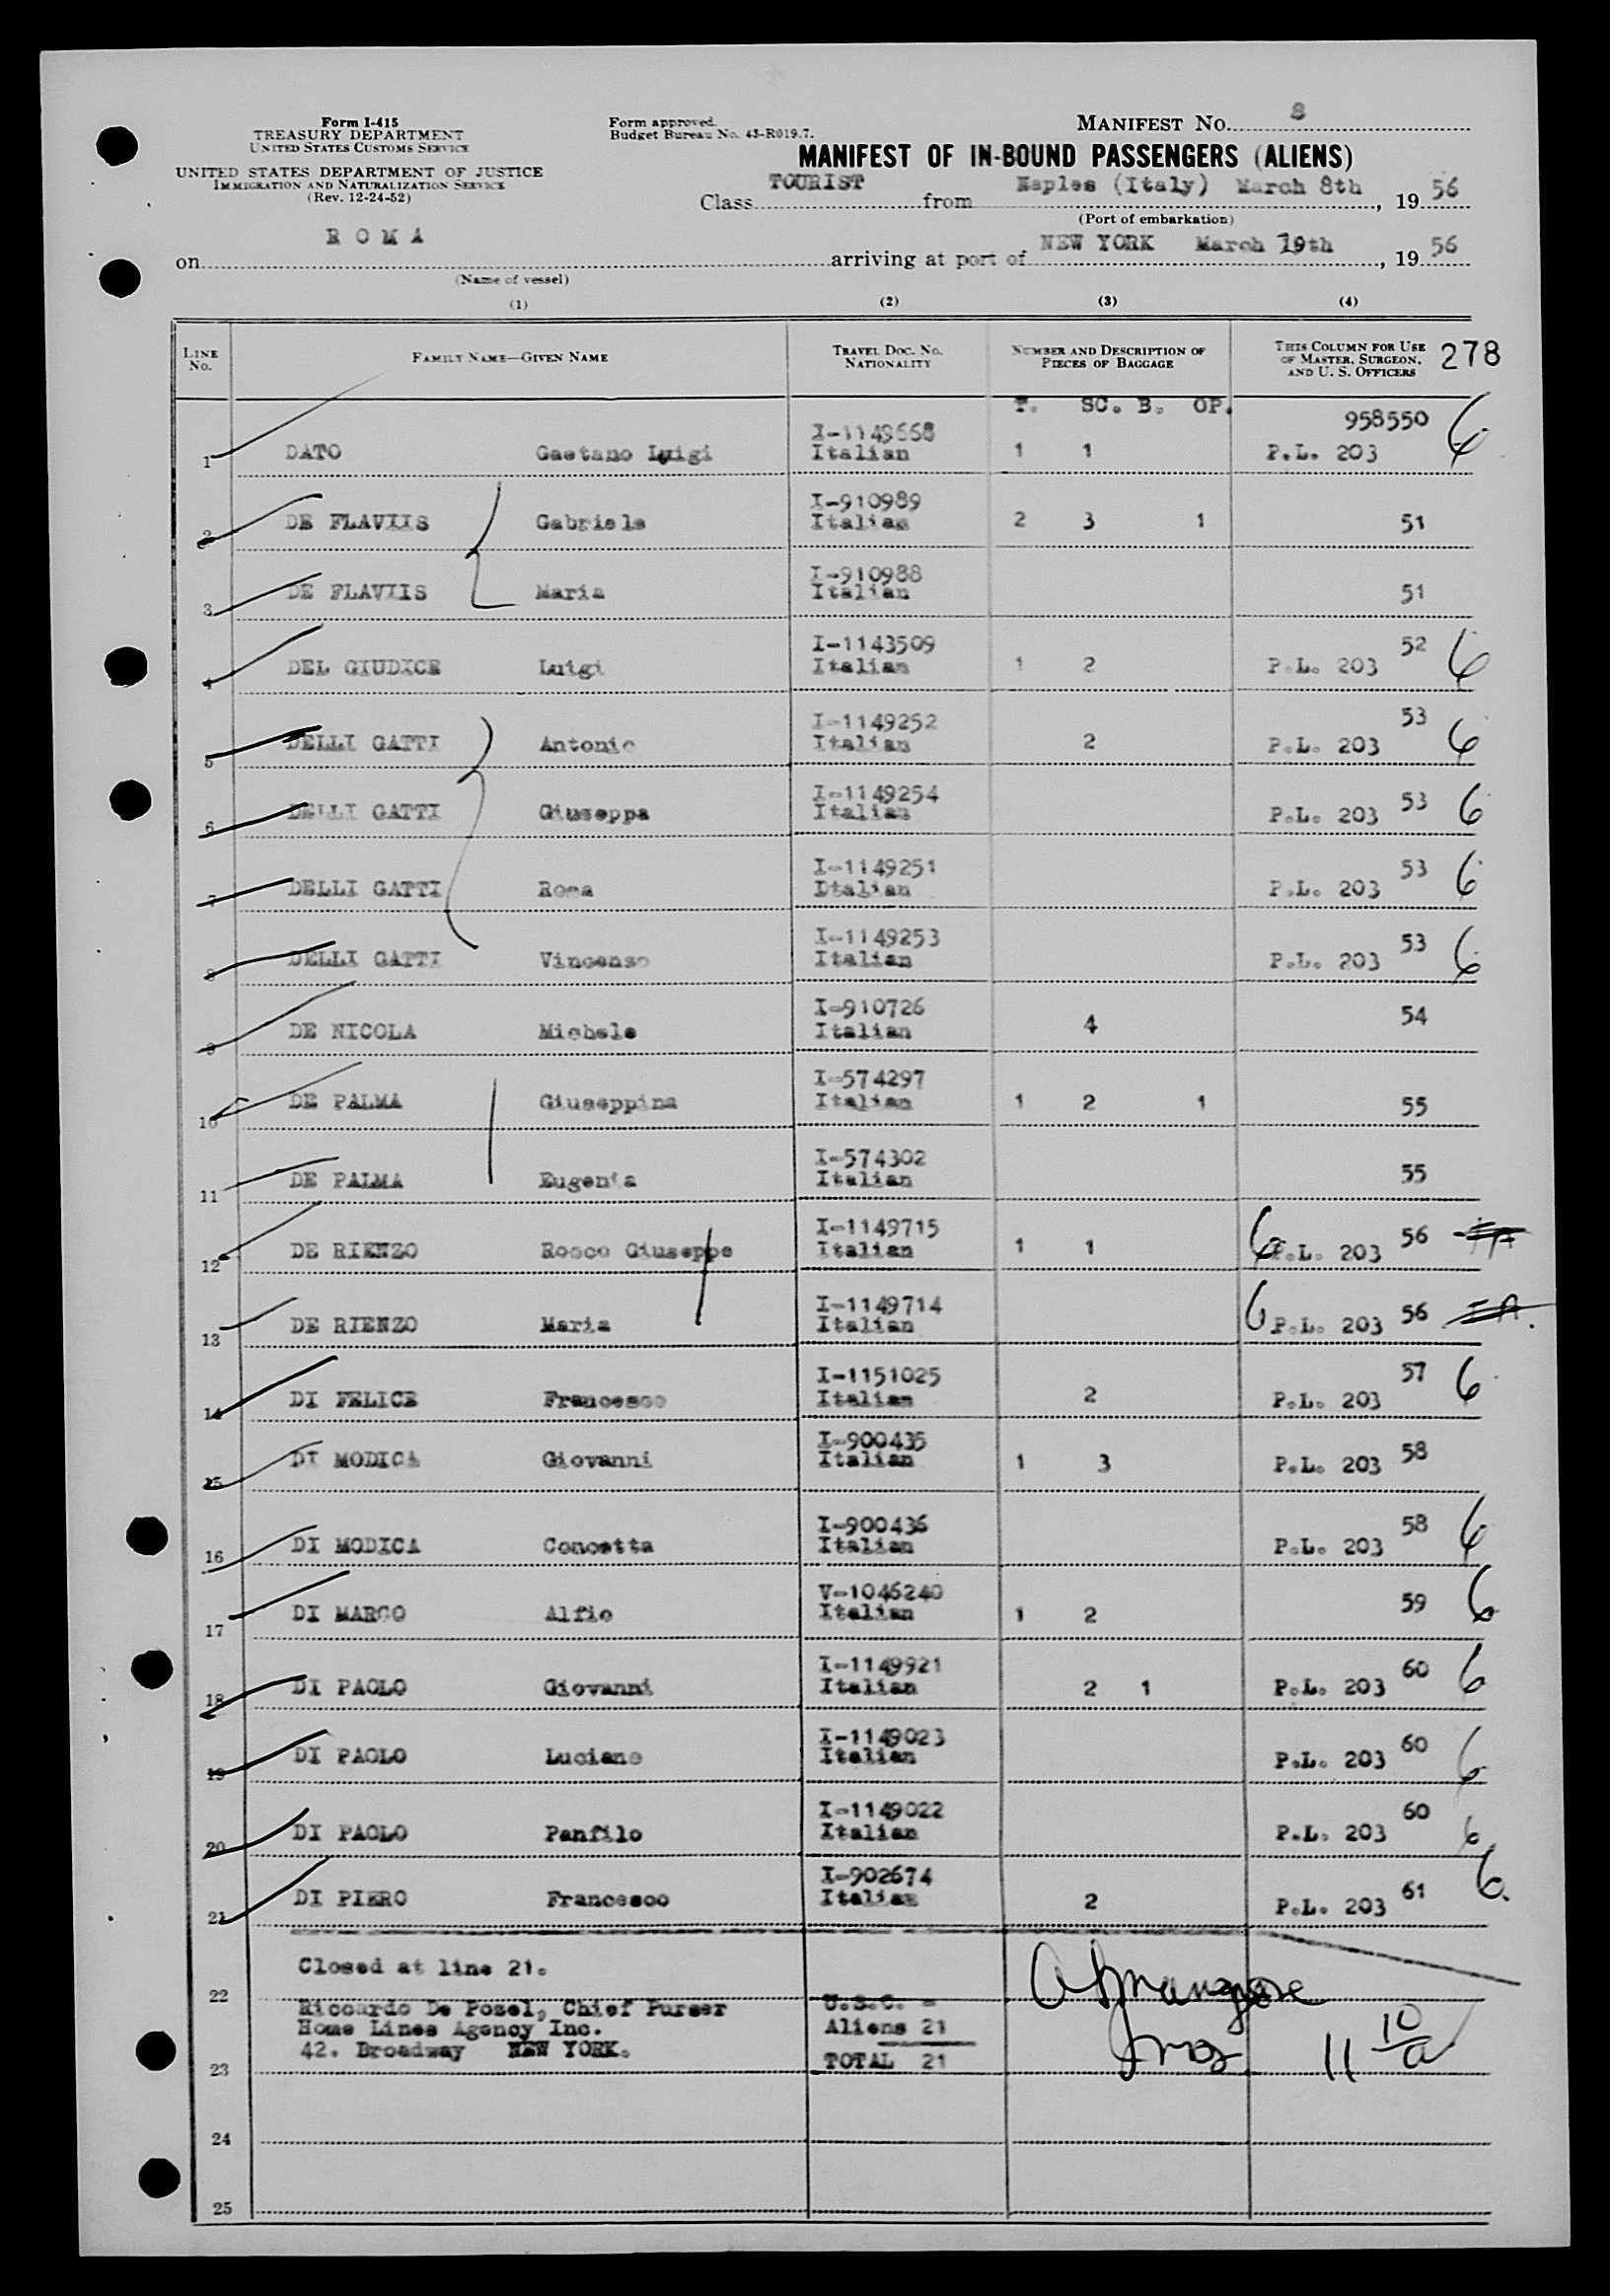 Form I-415
TREASURY DEPARTMENT
UNITED STATES CUSTOMS SERVICE
UNITED STATES DEPARTMENT OF JUSTICE
IMMIGRATION AND NATURALIZATION SERVICE
(Rev. 12-24-52)
Form approved.
Budget Bureau No. 43-R019.7.
MANIFEST NO. 8
MANIFEST OF IN-BOUND PASSENGERS (ALIENS)
Class TOURIST from Naples (Italy) March 8th, 1956
(Port of embarkation)
on R O M A arriving at port of NEW YORK March 19th, 1956
(Name of vessel)
(1) (2) (3) (4)
LINE No. FAMILY NAME—GIVEN NAME TRAVEL DOC. NO. NATIONALITY NUMBER AND DESCRIPTION OF PIECES OF BAGGAGE THIS COLUMN FOR USE OF MASTER, SURGEON, AND U. S. OFFICERS 278
T. SC. B. OP.
1 DATO Gaetano Luigi I-1149668 Italian 1 1 958550 P.L. 203 6
2 DE FLAVIIS Gabriele I-910989 Italian 2 3 1 51
3 DE FLAVIIS Maria I-910988 Italian 51
4 DEL GIUDICE Luigi I-1143509 Italian 1 2 P.L. 203 52 6
5 DELLI GATTI Antonio I-1149252 Italian 2 P.L. 203 53 6
6 DELLI GATTI Giuseppa I-1149254 Italian P.L. 203 53 6
7 DELLI GATTI Rosa I-1149251 Dtalian P.L. 203 53 6
8 DELLI GATTI Vincenzo I-1149253 Italian P.L. 203 53 6
9 DE NICOLA Michele I-910726 Italian 4 54
10 DE PALMA Giuseppina I-574297 Italian 1 2 1 55
11 DE PALMA Eugenia I-574302 Italian 55
12 DE RIENZO Rosco Giuseppe I-1149715 Italian 1 1 6 P.L. 203 56
13 DE RIENZO Maria I-1149714 Italian 6 P.L. 203 56
14 DI FELICE Francesco I-1151025 Italian 2 P.L. 203 57 6
15 DI MODICA Giovanni I-900435 Italian 1 3 P.L. 203 58
16 DI MODICA Concetta I-900436 Italian P.L. 203 58 6
17 DI MARCO Alfio V-1046240 Italian 1 2 59 6
18 DI PAOLO Giovanni I-1149921 Italian 2 1 P.L. 203 60 6
19 DI PAOLO Luciano I-1149023 Italian P.L. 203 60 6
20 DI PAOLO Panfilo I-1149022 Italian P.L. 203 60 6
21 DI PIERO Francesco I-902674 Italian 2 P.L. 203 61 6.
Closed at line 21.
22
Riccardo De Pozel, Chief Purser U.S.C. -
Home Lines Agency Inc. Aliens 21
42. Broadway NEW YORK. TOTAL 21 11 10/a
23
24
25